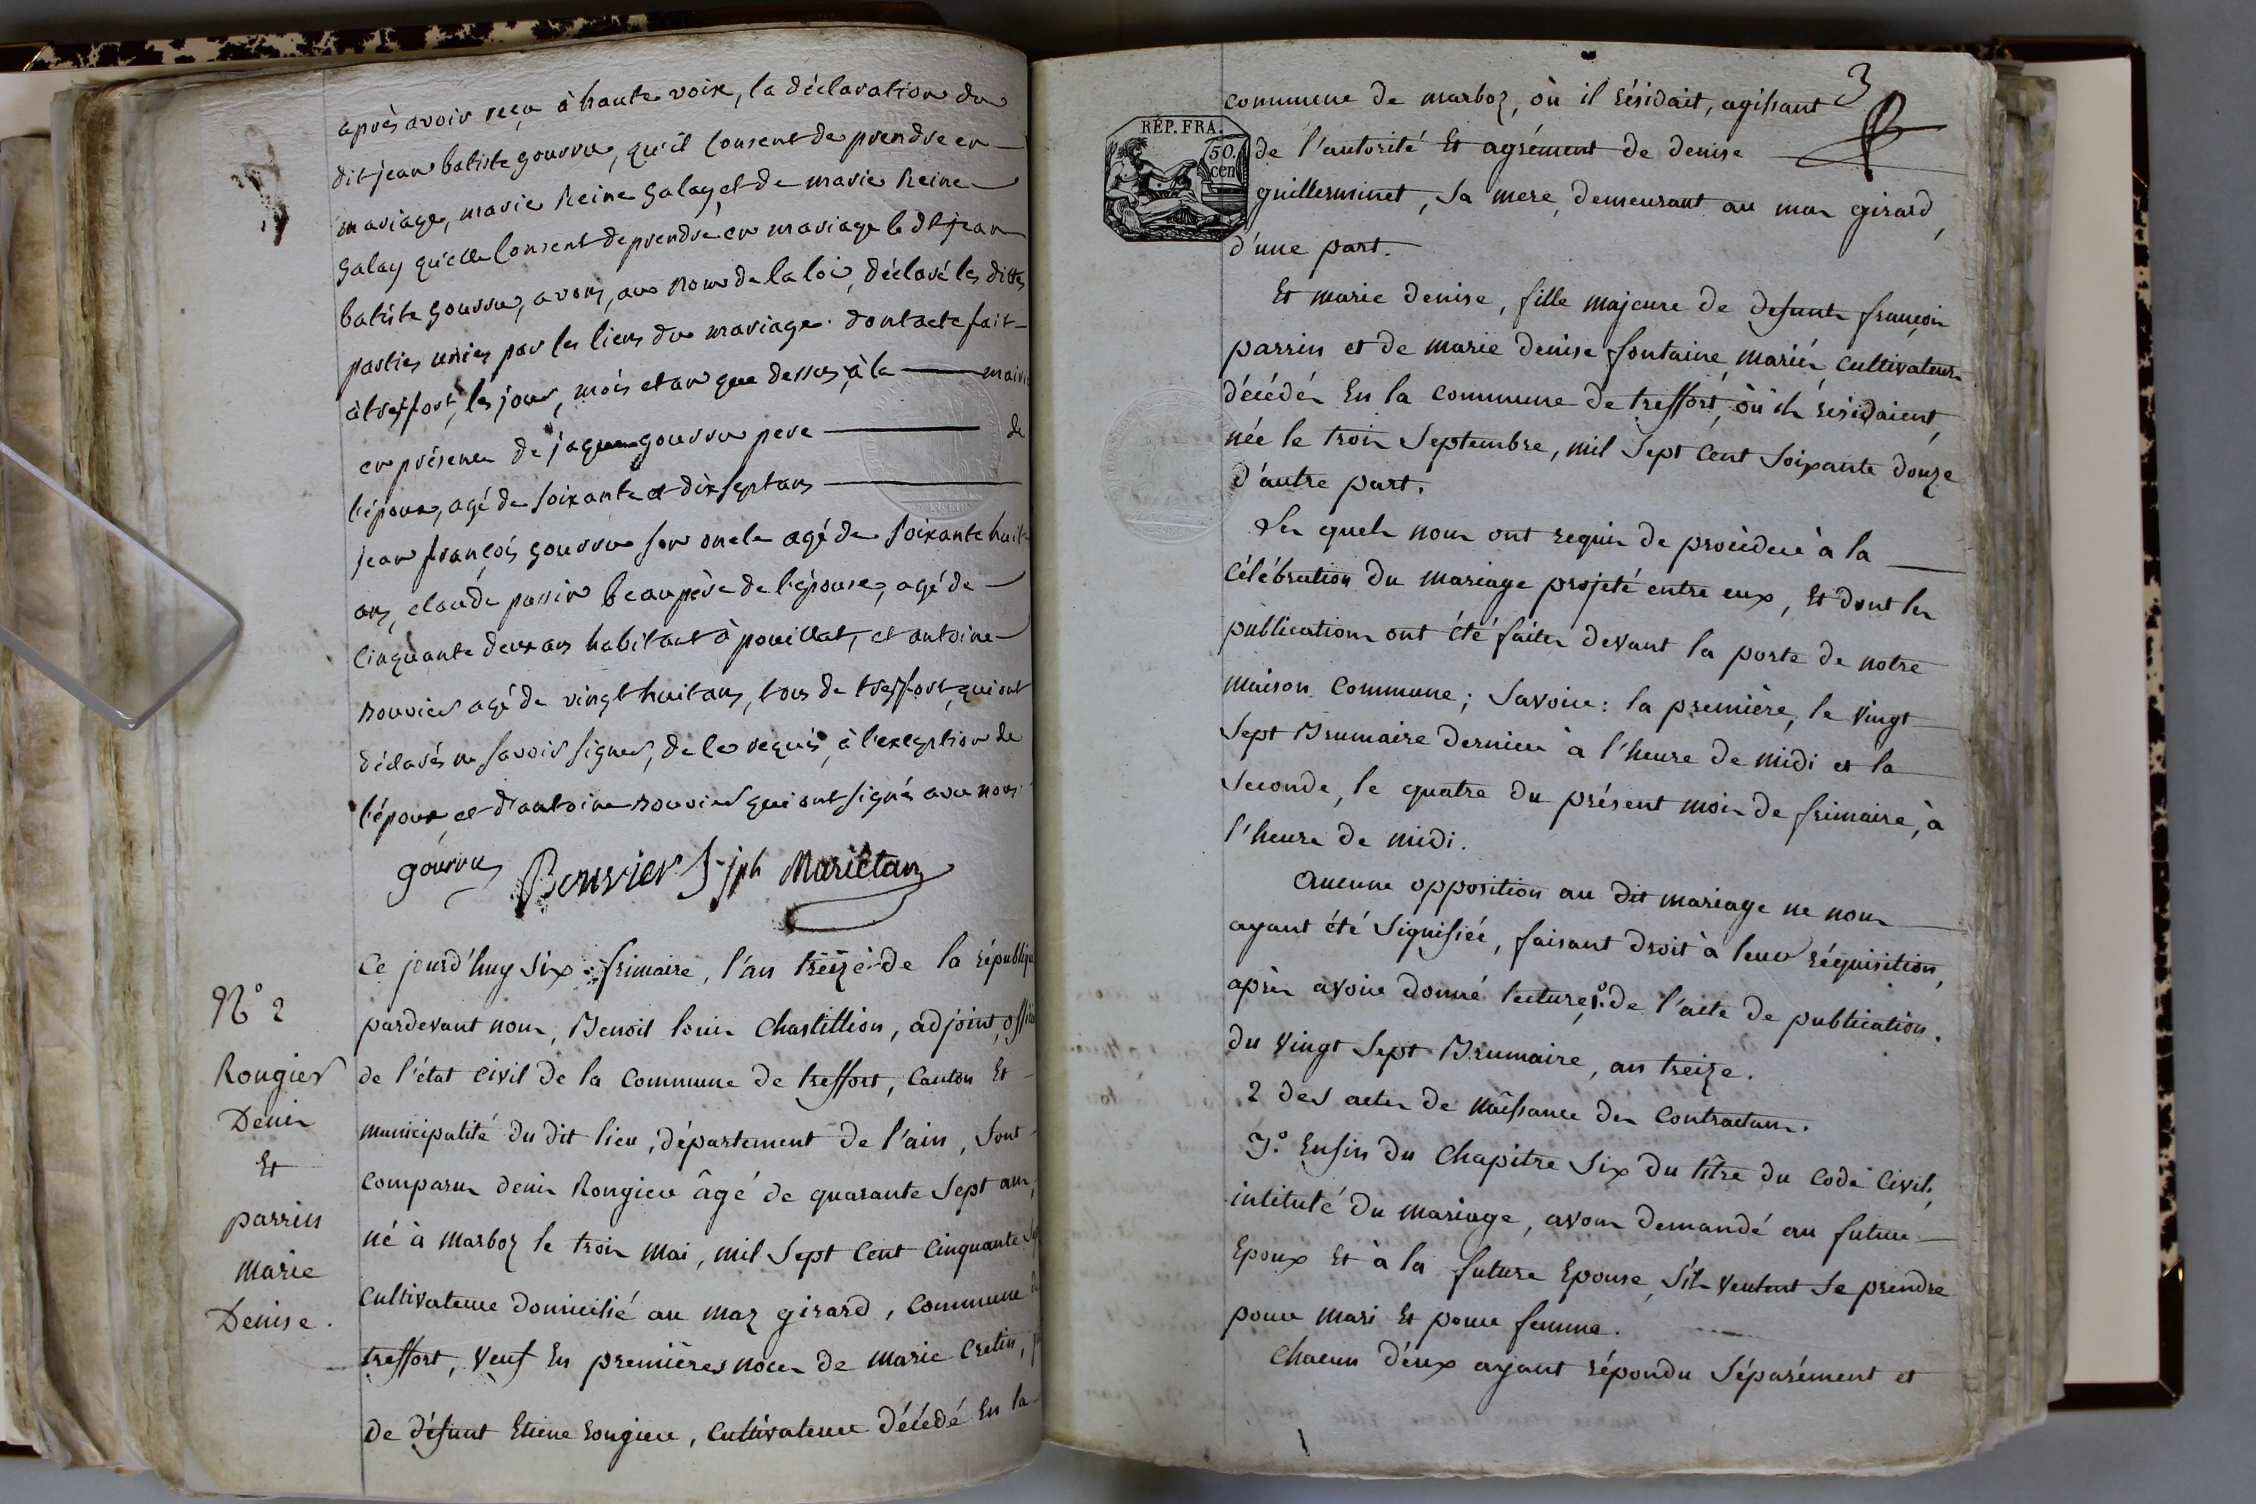 après avoir reçu à haute voix, la déclaration du
dit jean batiste gourru, qu'il consent de prendre en
mariage, marie Reine Galay, et de marie Reine
galay qu'elle consent de prendre en mariage le dt jean
batiste gourru, avons, au nom de la loi, déclaré les dittes
parties unies par les liens du mariage. dont acte fait
à treffort, les jour, mois et an que dessus, à la mairie
en présence de jaque gourru pere de
l'époux, agé de soixante et dix sept ans
jean françois gourru son oncle agé de soixante huit
ans, claude passin beaupère de l'épouse, agé de
cinquante deux ans habitant à pouillat, et antoine
bouvier agé de vingt huit ans, tous de treffort, qui ont
déclarés ne savoir signer, de ce requis, à l'exception de
l'époux, et d'antoine bouvier qui ont signés avec nous
gourru Bouvier J-jph Mariétan
Ce jourd'huy six frimaire, l'an treize de la républiq
pardevant nous, Benoit louis Chastillion, adjoint, offi
de l'état civil de la Commune de treffort, Canton Et
municipalité du dit lieu, département de l'ain, Sont
comparus denis Rongier âgé de quarante Sept ans,
né à marboz le trois mai, mil Sept Cent Cinquante Sep
Cultivateur domicilié au maz girard, Commune de
treffort, Veuf En premières noces de marie Cretin,
de défunt Etiene Rongier, Cultivateur décédé En la
N° 2
Rongier
Denis
Et
parrin
Marie
Denise.
3
RÉP. FRA.
50.
cen
commune de marboz, où il résidait, agissant
de l'autorité Et agrément de denise
guillerminet, sa mere, demeurant au mas girard,
d'une part.
Et marie denise, fille majeure de defunts françois
parrin et de marie denise fontaine, mariés, cultivateurs
décédés En la commune de treffort, où ils résidaient,
née le trois Septembre, mil Sept Cent Soixante douze
d'autre part.
Les quels nous ont requis de procéder à la
célébration du mariage projeté entre eux, Et dont les
publications ont été faites devant la porte de notre
maison Commune; Savoir: la première, le Vingt
Sept Brumaire dernier à l'heure de midi et la
Seconde, le quatre du présent mois de frimaire, à
l'heure de midi.
Aucune opposition au dit mariage ne nous
ayant été Signifiée, faisant droit à leur réquisition,
après avoir donné lecture, 1°. de l'acte de publication.
du Vingt Sept Brumaire, an treize.
2 des actes de naissance des Contractans.
3°. Enfin du Chapitre Six du titre du Code Civil,
intitulé du mariage, avons demandé au futur
Epoux Et à la future Epouse, s'ils veulent se prendre
pour mari Et pour femme.
Chacun d'eux ayant répondu Séparément et